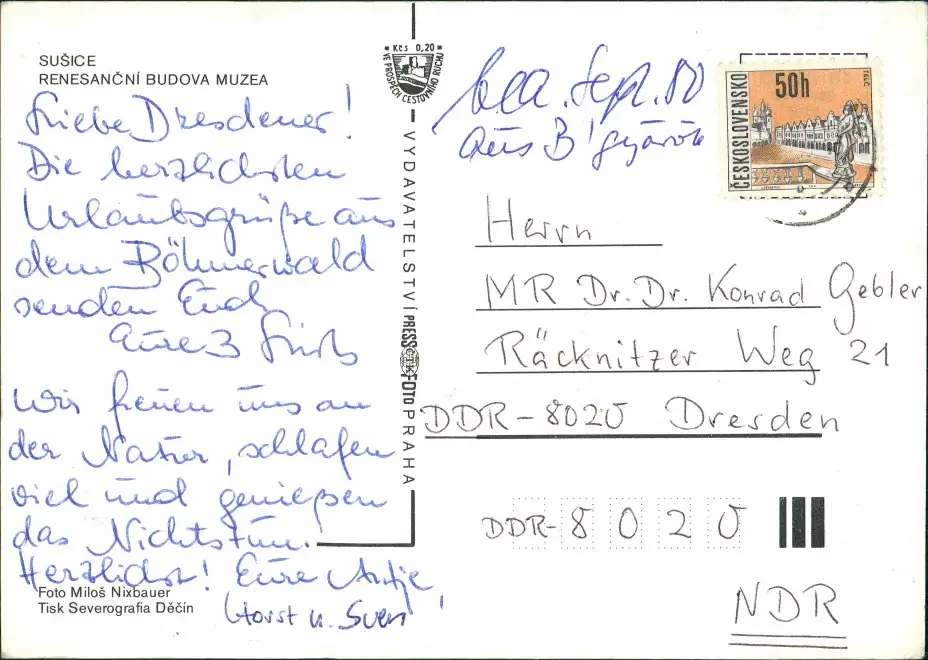 SUŠICE
RENESANČNÍ BUDOVA MUZEA
Liebe Dresdener!
Die herzlichsten
Urlaubsgrüße aus
dem Böhmerwald
senden Euch
Eure 3
Wir freuen uns an
der Natur, schlafen
viel und genießen
das Nichtstun.
Herzlichst! Eure Antje,
Horst u. Sven
Foto Miloš Nixbauer
Tisk Severografia Děčín
Kčs 0,20
VE PROSPĚCH CESTOVNÍHO RUCHU
VYDAVATELSTVÍ PRESSFOTO PRAHA
ČTK
Sept. 80
aus B'győrök
ČESKOSLOVENSKO
50h
TELČ
Herrn
MR Dr. Dr. Konrad Gebler
Räcknitzer Weg 21
DDR-8020 Dresden
DDR-8020
NDR